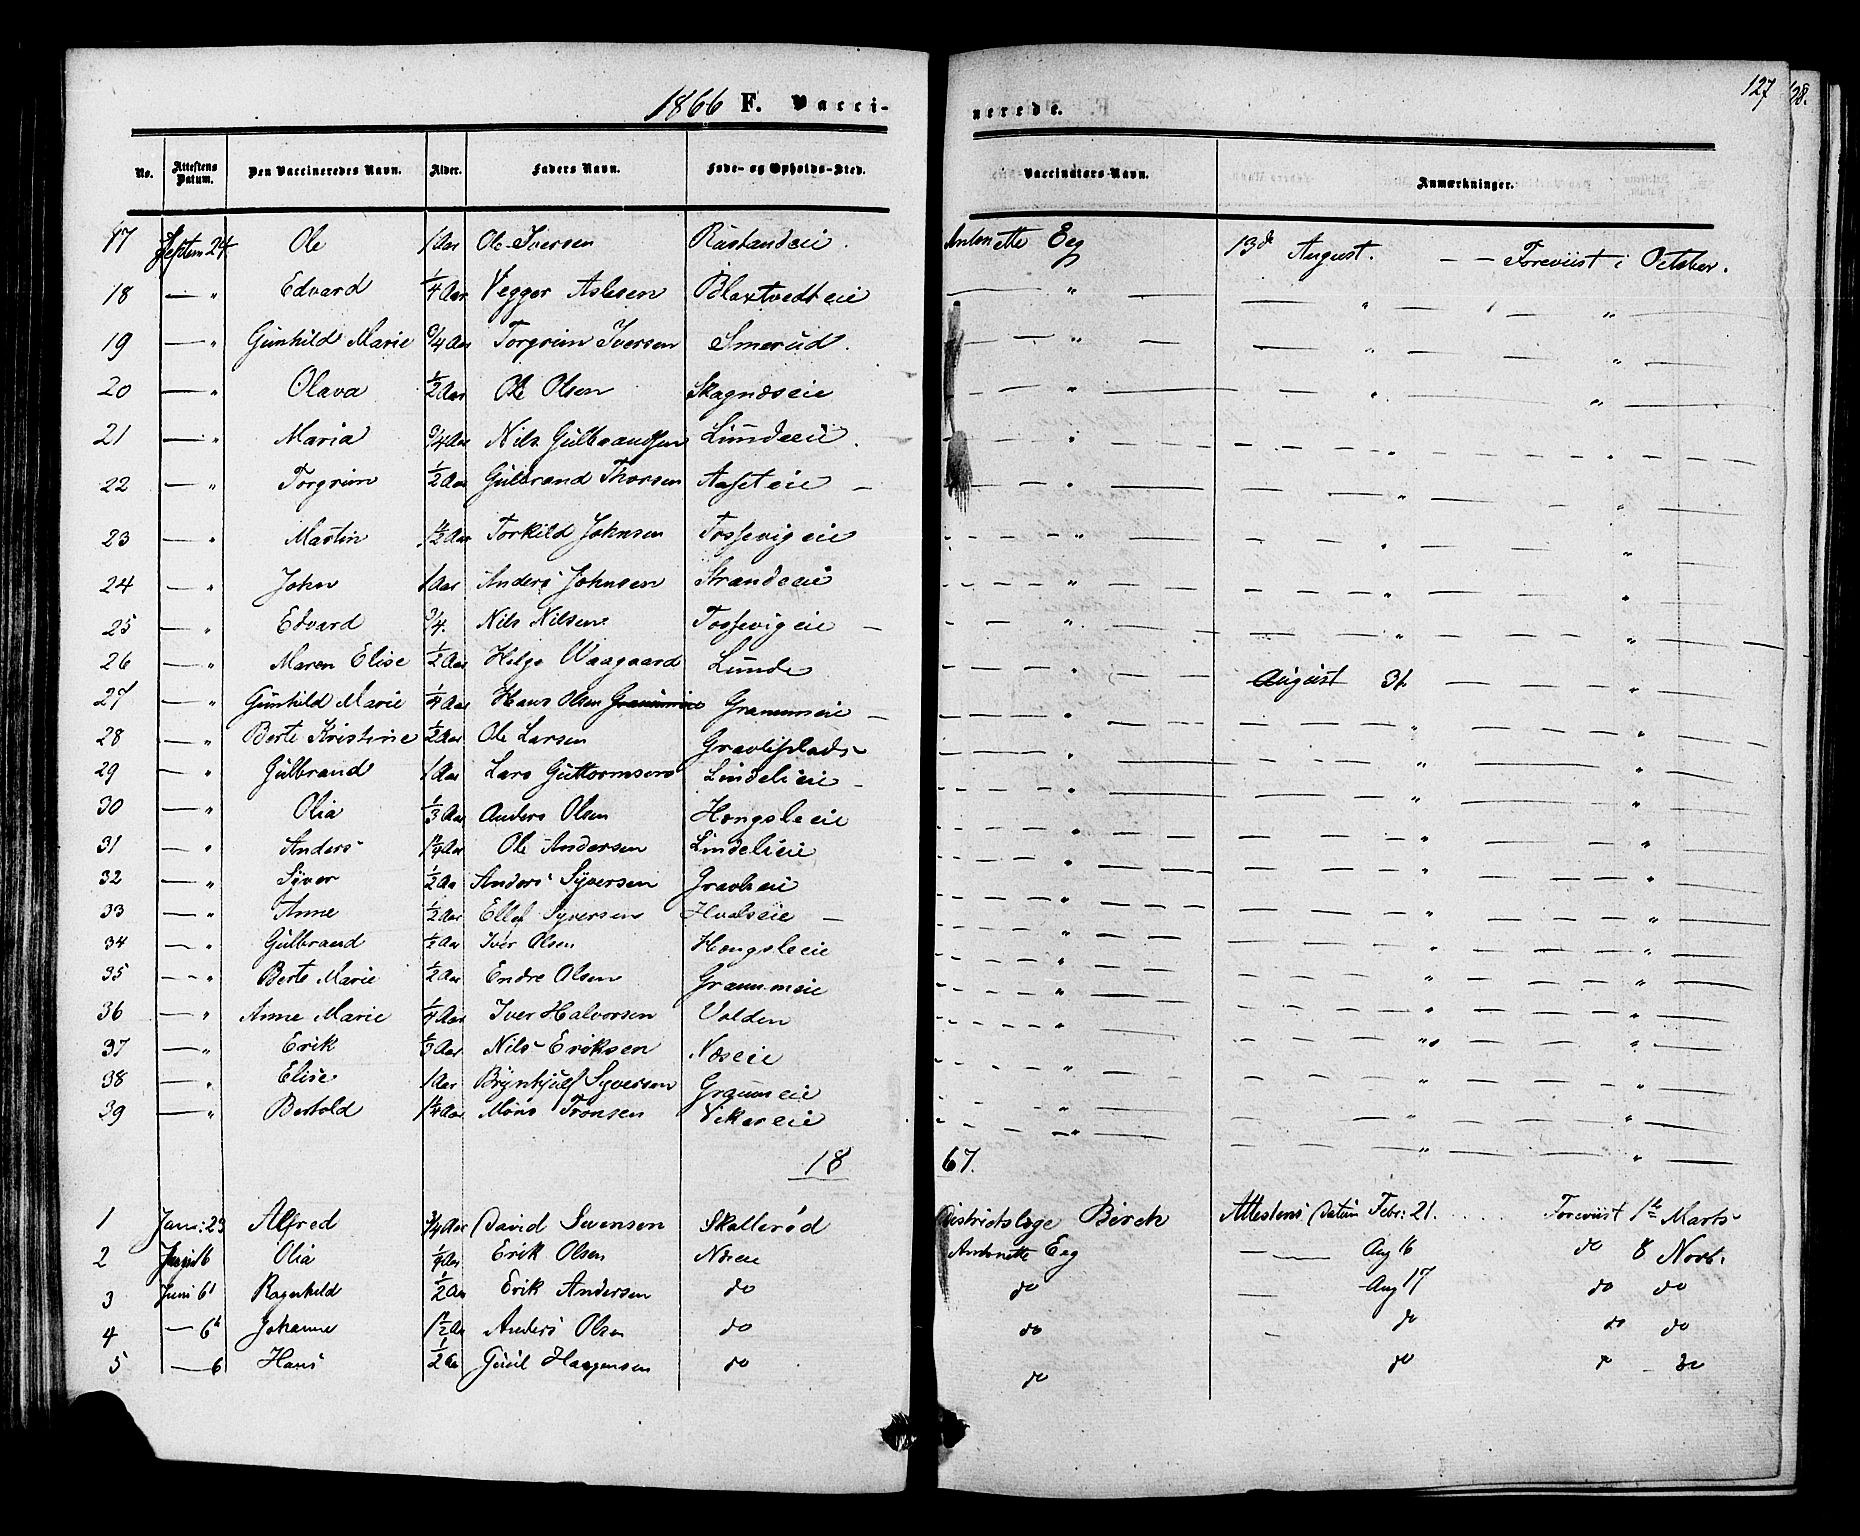 127
128.
1866 F. Vaccinerede.
No. Attestens Datum. Den Vaccineredes Navn. Alder. Faders Navn. Føde- og Opholds-Sted. Vaccinators Navn. Anmærkninger.
17 Septem 24 Ole 1 Aar Ole Iversen Antonette Eeg 13d August. — — Foreviist i October.
18 — " Edvard 1/4 Aar Vegger Aslesen Blaxtvedteie — " — — " — — " —
19 — " Gunhild Marie 3/4 Aar Torgrim Iversen Smerud. — " — — " — — " —
20 — " Olava 1/2 Aar Ole Olsen Skagnæseie — " — — " — — " —
21 — " Maria 3/4 Aar Nils Gulbrandsen Lundeeie. — " — — " — — " —
22 — " Torgrim 1/2 Aar Gulbrand Thorsen Aaseteie — — " — — " — — " —
23 — " Martin 1 1/2 Aar Torkild Johnsen Tossevigeie — " — — " — — " —
24 — " John 1 Aar Anders Johnsen Strandeeie — " — — " — — " —
25 — " Edvard 3/4. Nils Nilsen Tossevigeie — — " — — " — — " —
26 — " Maren Elise 1/2 Aar Helge Waagaard Lunde — " — August 31 — — " —
27 — " Gunhild Marie 1/4 Aar Hans Olsen Granumeie — — " — — " — — " —
28 — " Berte Kristine 1/2 Aar Ole Larsen — " — — " — — " —
29 — " Gulbrand 1 Aar Lars Guttormsen Lindelieie — — " — — " — — " —
30 — " Olia 1/3 Aar Anders Olsen Hongsleeie — " — — " — — " —
31 — " Anders 1 1/4 Aar Ole Andersen Lindelieie — " — — " — — " —
32 — " Syver 1/2 Aa Anders Syversen — " — — " — — " —
33 — " Anne 1/2 Aar Ellef Syversen Hvalseie — — " — — " — — " —
34 — " Gulbrand 1/2 Aar Iver Olsen Hongsleeie — " — — " — — " —
35 — " Berte Marie 1/2 Aar Endre Olsen Granumeie — " — — " — — " —
36 — " Anne Marie 1/4 Aar Iver Halvorsen Volden — " — — " — — " —
37 — " Erik Aar Nils Eriksen Næseie — " — — " — — " —
38 — " Elise 1 Aar Brynhjulf Syversen Granumeie — " — — " — — " —
39 — " Bertold 1 1/4 Aar Møns Tronsen Vikereie — " — — " — — " —
1867.
1 Janu: 23 Alfred 3/4 Aar David Svensen Skollerød Districtslæge Birch Attestens Datum Febr: 21. Foreviist 1te Marts
2 Juni 6 Olia 1/4 Aar Erik Olsen Næseie Antonette Eeg — Aug 16 do 8 Novb:
3 Juni 6 Ragnhild 1/2 Aar Erik Andersen do do — Aug 17 do do
4 — 6 Johanne 1 1/2 Aar Anders Olsen do do — do do do
5 — 6 Hans 1/2 Aa Guul Haagensen do do do do do